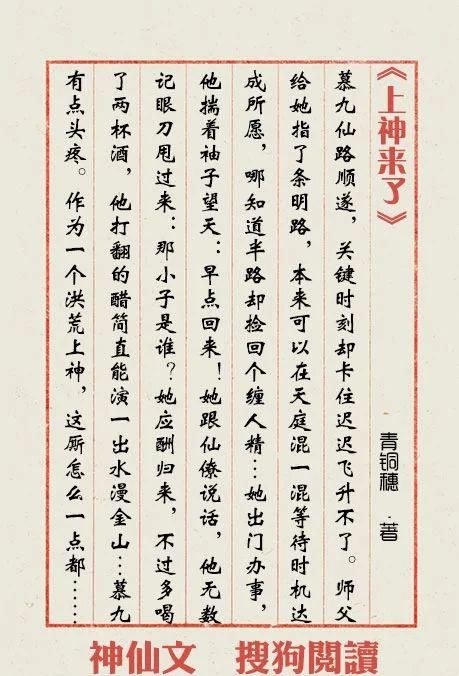 《上神来了》
青铜穗·著
慕九仙路顺遂，关键时刻却卡住迟迟飞升不了。师父
给她指了条明路，本来可以在天庭混一混等待时机达
成所愿，哪知道半路却捡回个缠人精…她出门办事，
他揣着袖子望天：早点回来！她跟仙僚说话，他无数
记眼刀甩过来：那小子是谁？她应酬归来，不过多喝
了两杯酒，他打翻的醋简直能演一出水漫金山…慕九
有点头疼。作为一个洪荒上神，这厮怎么一点都……
神仙文 搜狗閱讀